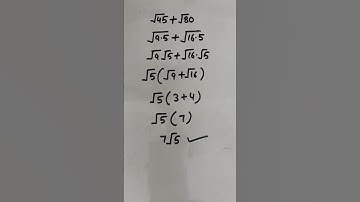 √45 + √80
√9·5 + √16·5
√9 √5 + √16·√5
√5 ( √9 + √16 )
√5 ( 3 + 4 )
√5 ( 7 )
7√5 ✓